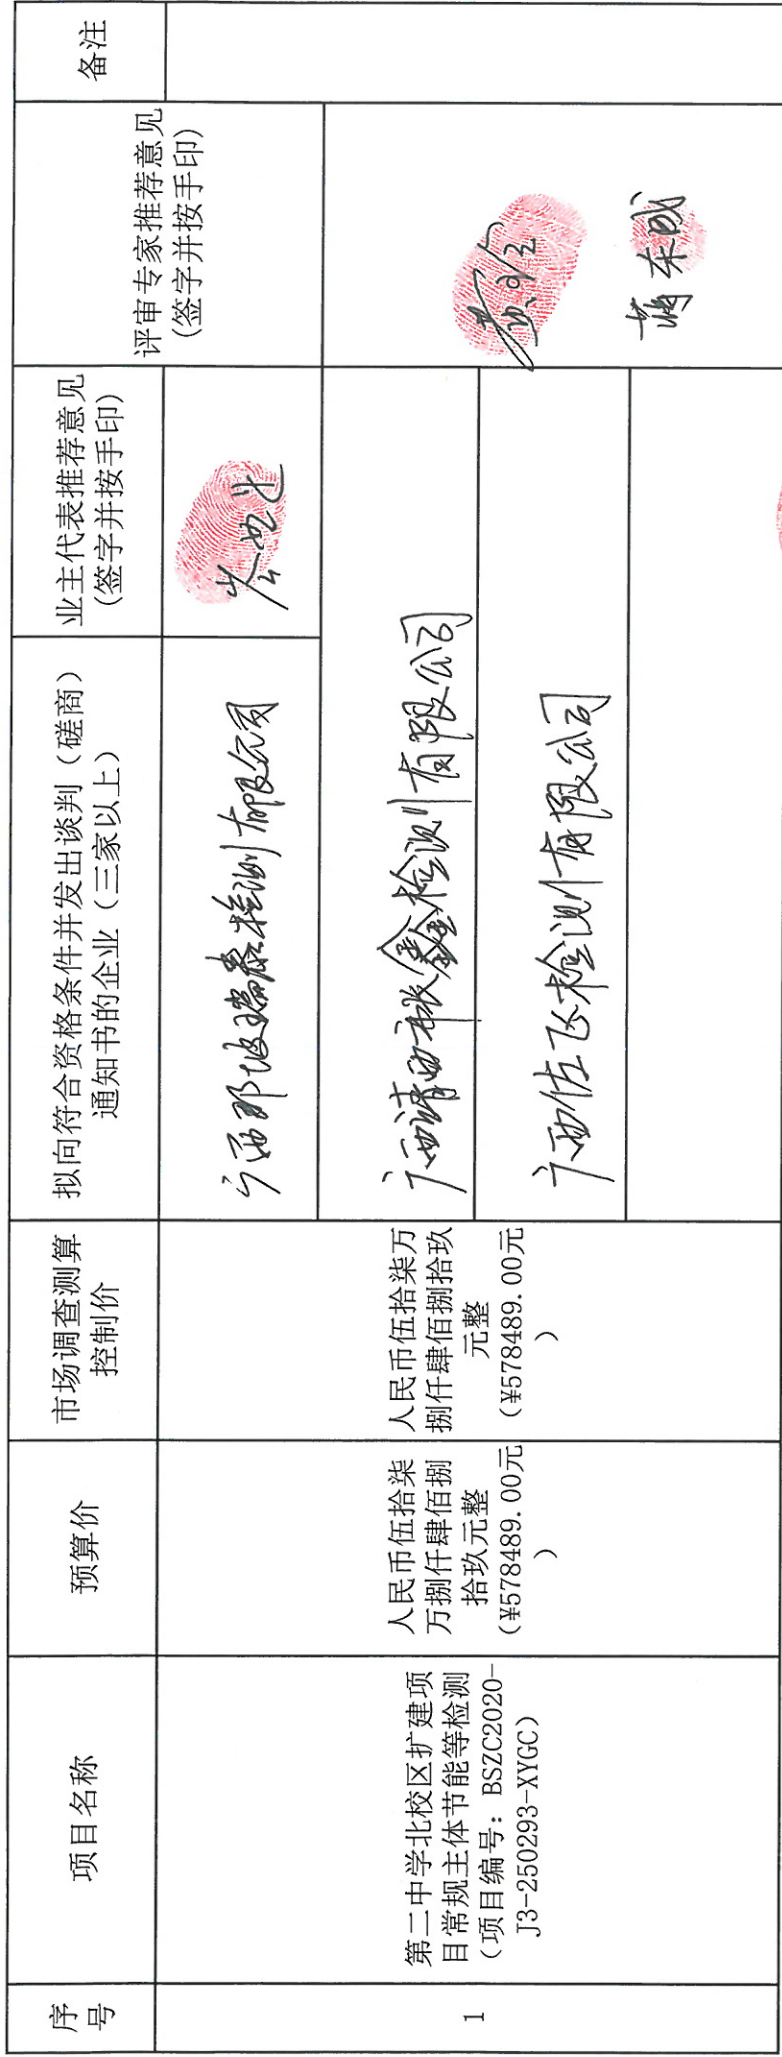 序
号
项目名称
预算价
市场调查测算
控制价
拟向符合资格条件并发出谈判（磋商）
通知书的企业（三家以上）
业主代表推荐意见
(签字并按手印)
评审专家推荐意见
(签字并按手印)
备注
1
第二中学北校区扩建项
目常规主体节能等检测
（项目编号：BSZC2020-
J3-250293-XYGC）
人民币伍拾柒
万捌仟肆佰捌
拾玖元整
（¥578489.00元
）
人民币伍拾柒万
捌仟肆佰捌拾玖
元整
（¥578489.00元
）
广西那坡瑞泰检测有限公司
广西靖西市振鑫检测有限公司
广西佐飞检测有限公司